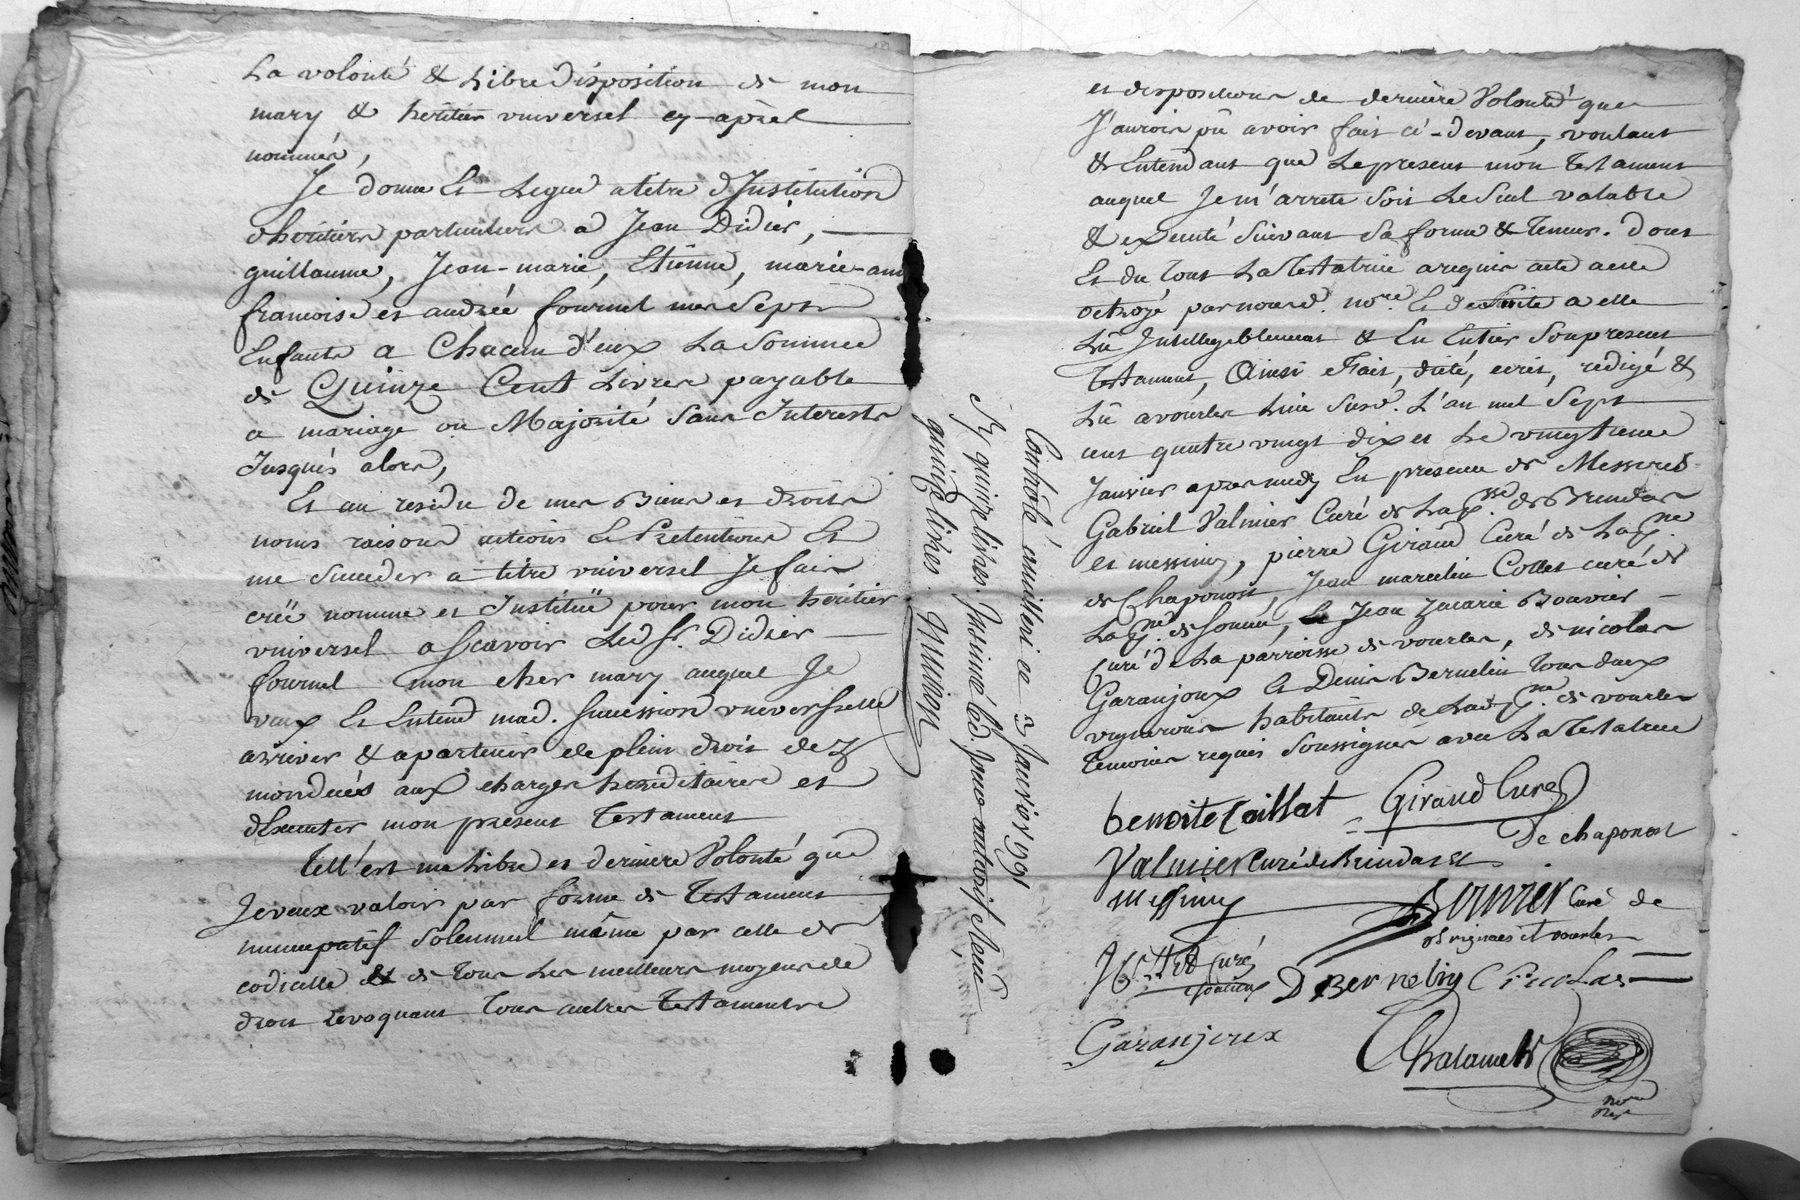 La volonté & Libre disposition de mon
mary & héritier universel cy-après
nommé,
Je donne Et Legue a titre d'Institution
d'heritiers particuliers a Jean Didier,
guillaume, Jean-marie, Etienne, marie-anne
francoise et andrée fournel mes Sept
Enfants a Chacun d'eux La Somme
de Quinze Cent Livres payable
a mariage ou Majorité Sans Interests
Jusqués alors,
Et au residu de mes Biens et droits
noms raisons actions Et Prétentions Et
me Succeder a titre universel Je fais
crée nomme et Institüe pour mon héritier
universel a Scavoir Led. Sr. Didier
fournel mon cher mary auquel Je
veux Et Entend mad. Succession universelle
arriver & apartenir de plein droit de
mon decés aux charges hereditaires et
d'Executer mon present Testament
Tell'est ma Libre et derniere Volonté que
Je veux valoir par forme de Testament
nuncupatif Solemnel même par celle de
codicille & de tous Les meilleurs moyens de
droit Revoquant tous autres Testaments
Controlé a Millery le 3 Janvier 1791
Rx quinze livres. Insinué led. Jour
quinze livres.
et dispositions de derniere Volonté que
J'aurois pû avoir fait cé-devant, voulant
& Entendant que Le present mon Testament
auquel Je m'arrete Soit Le Seul valable
& executé Suivant Sa forme & Teneur. Dont
Et du tout La Testatrice a requis acte a elle
octroyé par nousd. nore. Et de Suite a elle
Lû Intelligiblement & En Entier Son present
Testament, Ainsi Fait, dicté, ecrit, redigé &
Lû a vourles Lieu Susd. L'an mil Sept
cent quatre vingt dix et Le vingtieme
Janvier apres midy En presence de Messires
Gabriel Valmier Curé de La psse. de Brindas
et messimy, pierre Giraud Curé de La pne.
de Chaponost, Jean marcelin Collet curé de
La pne. de Soucieu, Jean Zacarie Bouvier
Curé de La parroisse de vourles, de nicolas
Garanjoux Et Denis Bernelin tous deux
vignerons habitants de Lad. pne. de vourles
temoins requis Soussignés avec La Testatrice
benoite Caillat Giraud Curé
De chaponost
Valmier Curé de Brindas et
messimy
Bouvier Curé de
et vourles
Collet Curé
D Bernelin Nicolas
Garanjoux
Chalamel
nore